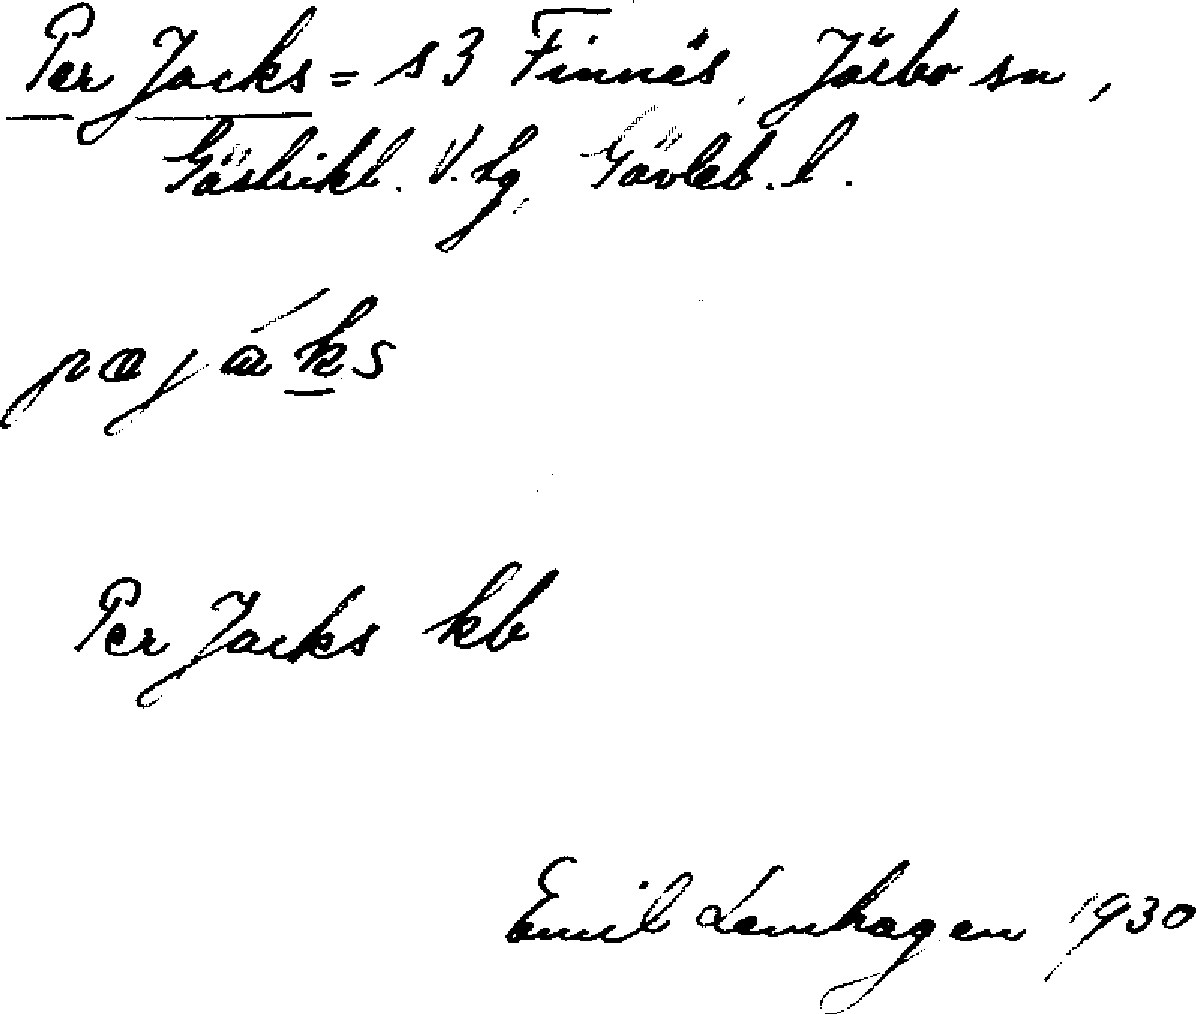 Per Jacks = s 3 Finnäs, Järbo sn,
Gästrikl. V. tg, Gävleb. l.
pæjáks
Per Jacks kb
Emil Lemhagen 1930